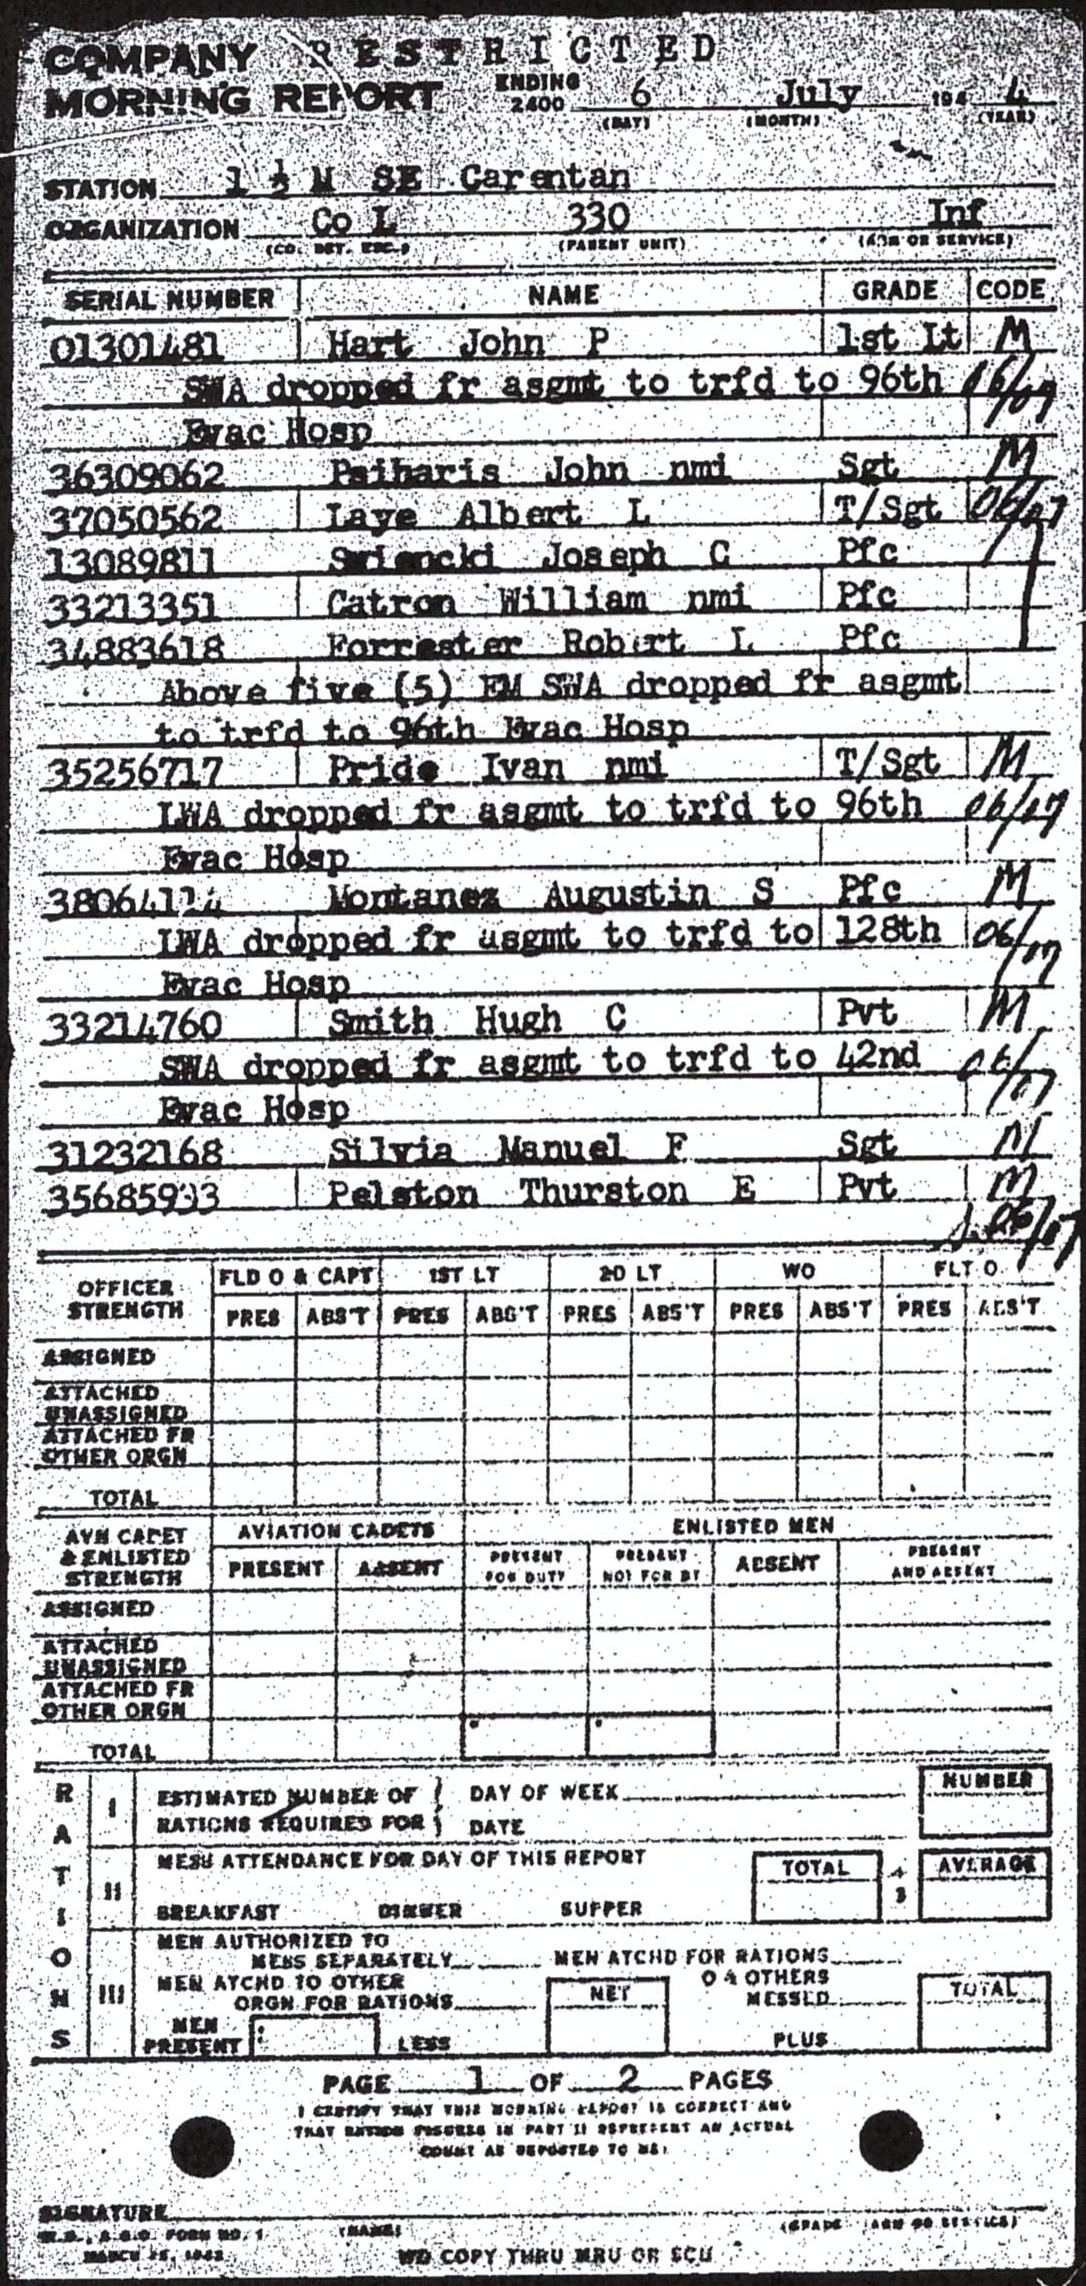 RESTRICTED
COMPANY
MORNING REPORT ENDING 2400 6 July 194 4
(DAY) (MONTH) (YEAR)
STATION 1 ½ M SE Carentan
ORGANIZATION Co L 330 Inf
(CO. DET. ETC.) (PARENT UNIT) (ARM OR SERVICE)
SERIAL NUMBER NAME GRADE CODE
01301481 Hart John P 1st Lt M
SWA dropped fr asgmt to trfd to 96th 06/07
Evac Hosp
36309062 Psiharis John nmi Sgt M
37050562 Laye Albert L T/Sgt 06/07
13089811 Joseph C Pfc
33213351 Catron William nmi Pfc
34883618 Forrester Robert L Pfc
Above five (5) EM SWA dropped fr asgmt
to trfd to 96th Evac Hosp
35256717 Pride Ivan nmi T/Sgt M
LWA dropped fr asgmt to trfd to 96th 06/07
Evac Hosp
Montanez Augustin S Pfc M
LWA dropped fr asgmt to trfd to 128th 06/07
Evac Hosp
33214760 Smith Hugh C Pvt M
SWA dropped fr asgmt to trfd to 42nd 06/07
Evac Hosp
31232168 Silvia Manuel F Sgt M
35685933 Pelston Thurston E Pvt M
06/07
OFFICER STRENGTH FLD O & CAPT 1ST LT 2D LT WO FLT O
PRES ABS'T PRES ABS'T PRES ABS'T PRES ABS'T PRES ABS'T
ASSIGNED
ATTACHED
UNASSIGNED
ATTACHED FR
OTHER ORGN
TOTAL
AVN CADET & ENLISTED STRENGTH AVIATION CADETS ENLISTED MEN
PRESENT ABSENT PRESENT FOR DUTY PRESENT NOT FOR DY ABSENT PRESENT AND ABSENT
ASSIGNED
ATTACHED
UNASSIGNED
ATTACHED FR
OTHER ORGN
TOTAL
RATIONS
I ESTIMATED NUMBER OF DAY OF WEEK NUMBER
RATIONS REQUIRED FOR DATE
II MESS ATTENDANCE FOR DAY OF THIS REPORT TOTAL ÷ 3 AVERAGE
BREAKFAST DINNER SUPPER
III MEN AUTHORIZED TO
MESS SEPARATELY MEN ATCHD FOR RATIONS
MEN ATCHD TO OTHER NET O & OTHERS TOTAL
ORGN FOR RATIONS MESSED
MEN
PRESENT LESS PLUS
PAGE 1 OF 2 PAGES
I CERTIFY THAT THIS MORNING REPORT IS CORRECT AND
THAT RATION FIGURES IN PART II REPRESENT AN ACTUAL
COUNT AS REPORTED TO ME:
SIGNATURE
(NAME) (GRADE ARM OR SERVICE)
W.D., A.G.O. FORM NO. 1
MARCH 25, 1942
WD COPY THRU MRU OR SCU